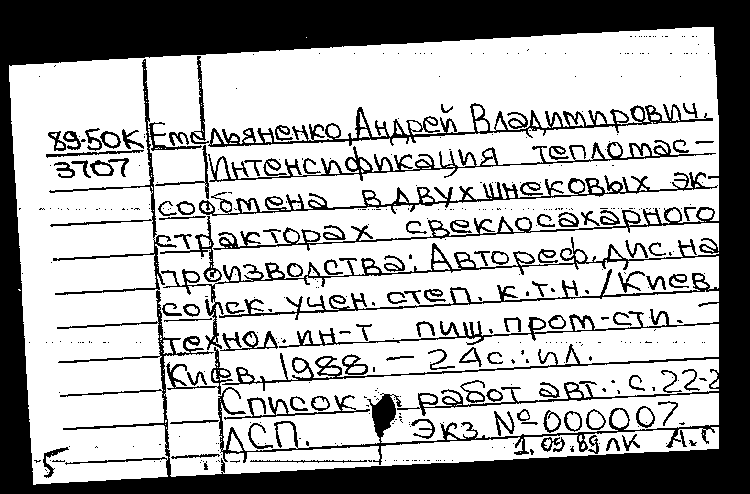 89-50К Емельяненко, Андрей Владимирович.
3707 Интенсификация тепломас-
сообмена в двухшнековых эк-
стракторах свеклосахарного
производства: Автореф. дис. на
соиск. учен. степ. к.т.н. / Киев.
технол. ин-т пищ. пром-сти. –
Киев, 1988. – 24с.: ил.
Список работ авт.: с. 22-2
ДСП. Экз. № 000007.
5 1.09.89 ЛК А.Г